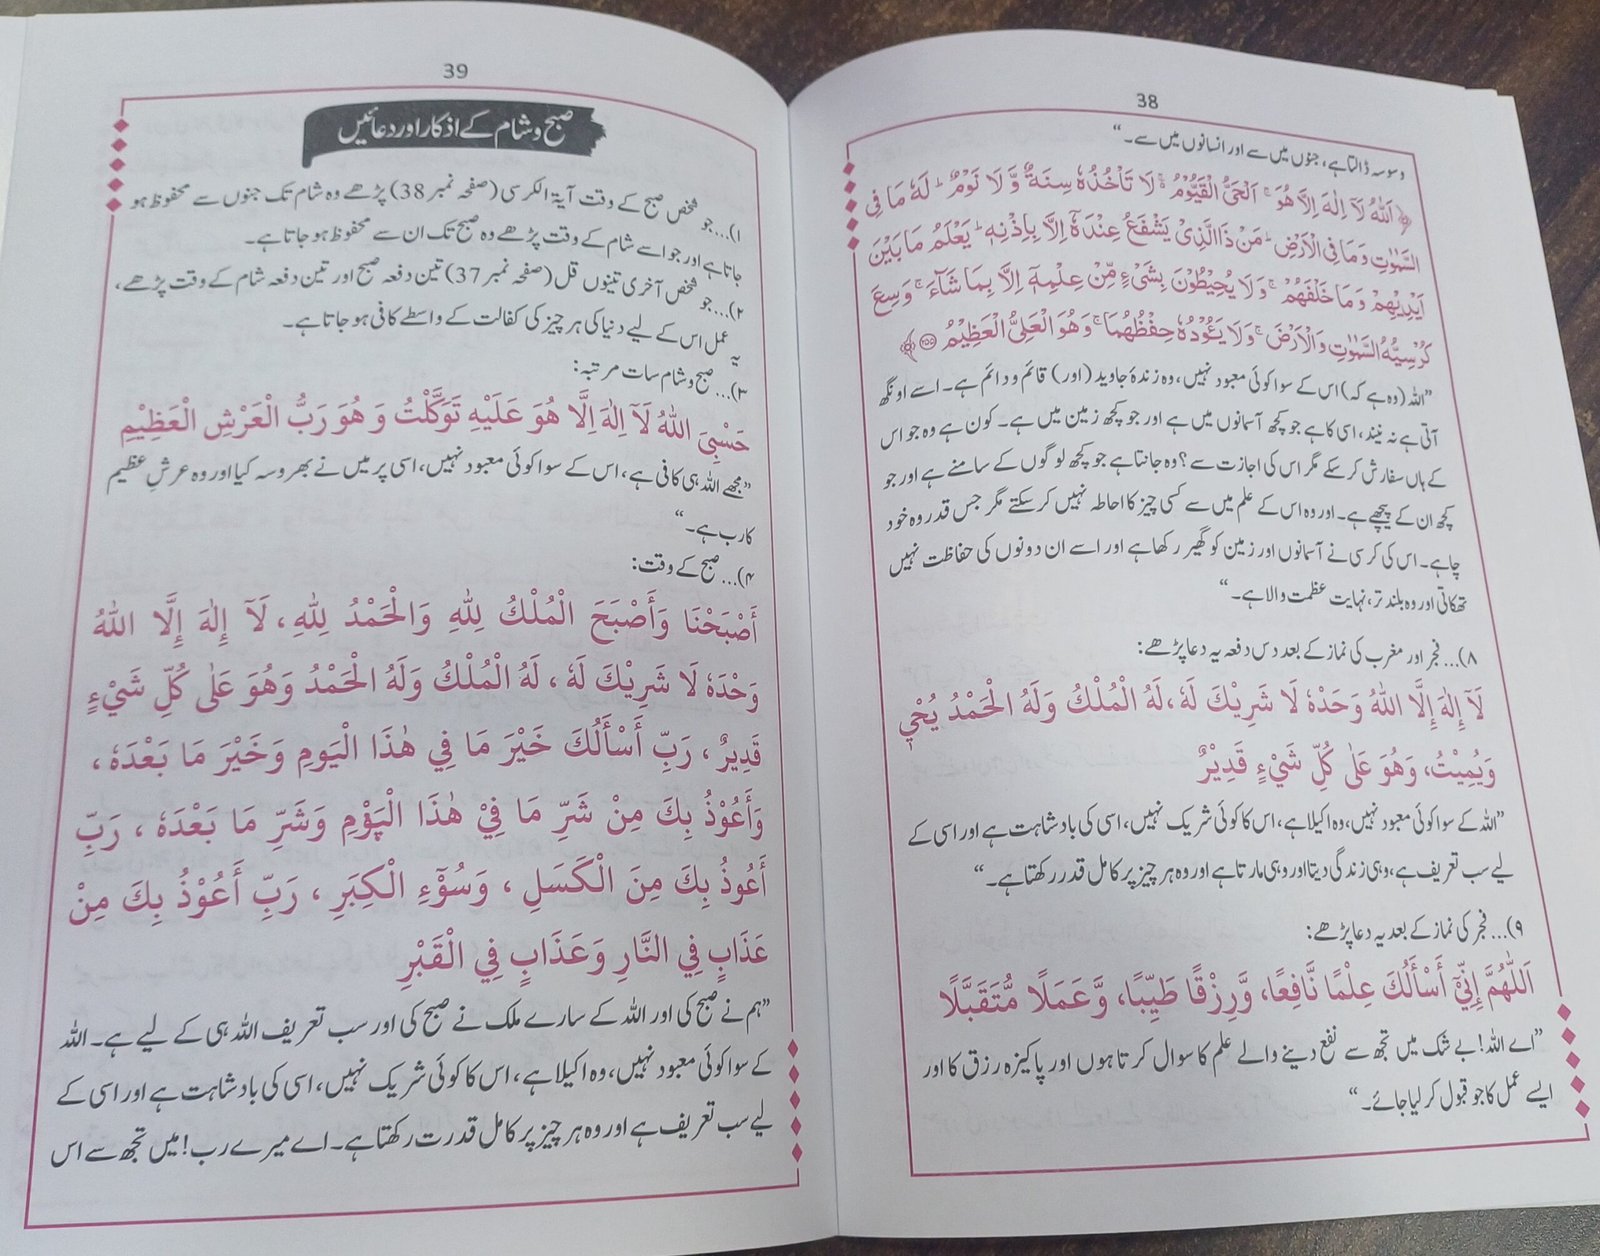 38
وسوسہ ڈالتا ہے، جنوں میں سے اور انسانوں میں سے۔“
﴿اَللّٰهُ لَاۤ اِلٰهَ اِلَّا هُوَ ۚ اَلْحَیُّ الْقَیُّوْمُ ۚ لَا تَاْخُذُهٗ سِنَةٌ وَّ لَا نَوْمٌ ؕ لَهٗ مَا فِی
السَّمٰوٰتِ وَ مَا فِی الْاَرْضِ ؕ مَنْ ذَا الَّذِیْ یَشْفَعُ عِنْدَهٗۤ اِلَّا بِاِذْنِهٖ ؕ یَعْلَمُ مَا بَیْنَ
اَیْدِیْهِمْ وَ مَا خَلْفَهُمْ ۚ وَ لَا یُحِیْطُوْنَ بِشَیْءٍ مِّنْ عِلْمِهٖۤ اِلَّا بِمَا شَآءَ ۚ وَسِعَ
كُرْسِیُّهُ السَّمٰوٰتِ وَ الْاَرْضَ ۚ وَ لَا یَـُٔوْدُهٗ حِفْظُهُمَا ۚ وَ هُوَ الْعَلِیُّ الْعَظِیْمُ ۲۵۵﴾
”اللہ (وہ ہے کہ) اس کے سوا کوئی معبود نہیں، وہ زندۂ جاوید (اور) قائم و دائم ہے۔ اسے اونگھ
آتی ہے نہ نیند، اسی کا ہے جو کچھ آسمانوں میں ہے اور جو کچھ زمین میں ہے۔ کون ہے وہ جو اس
کے ہاں سفارش کر سکے مگر اس کی اجازت سے؟ وہ جانتا ہے جو کچھ لوگوں کے سامنے ہے اور جو
کچھ ان کے پیچھے ہے۔ اور وہ اس کے علم میں سے کسی چیز کا احاطہ نہیں کر سکتے مگر جس قدر وہ خود
چاہے۔ اس کی کرسی نے آسمانوں اور زمین کو گھیر رکھا ہے اور اسے ان دونوں کی حفاظت نہیں
تھکاتی اور وہ بلند تر، نہایت عظمت والا ہے۔“
۸)... فجر اور مغرب کی نماز کے بعد دس دفعہ یہ دعا پڑھے:
لَاۤ إِلٰهَ إِلَّا اللّٰهُ وَحْدَهٗ لَا شَرِيْكَ لَهٗ، لَهُ الْمُلْكُ وَلَهُ الْحَمْدُ يُحْيِ
وَيُمِيْتُ، وَهُوَ عَلٰى كُلِّ شَيْءٍ قَدِيْرٌ
”اللہ کے سوا کوئی معبود نہیں، وہ اکیلا ہے، اس کا کوئی شریک نہیں، اسی کی بادشاہت ہے اور اسی کے
لیے سب تعریف ہے، وہی زندگی دیتا اور وہی مارتا ہے اور وہ ہر چیز پر کامل قدر رکھتا ہے۔“
۹)... فجر کی نماز کے بعد یہ دعا پڑھے:
اَللّٰهُمَّ إِنِّيْۤ أَسْأَلُكَ عِلْمًا نَّافِعًا، وَّرِزْقًا طَيِّبًا، وَّعَمَلًا مُّتَقَبَّلًا
”اے اللہ! بے شک میں تجھ سے نفع دینے والے علم کا سوال کرتا ہوں اور پاکیزہ رزق کا اور
ایسے عمل کا جو قبول کر لیا جائے۔“
39
صبح و شام کے اذکار اور دعائیں
۱)... جو شخص صبح کے وقت آیۃ الکرسی (صفحہ نمبر 38) پڑھے وہ شام تک جنوں سے محفوظ ہو
جاتا ہے اور جو اسے شام کے وقت پڑھے وہ صبح تک ان سے محفوظ ہو جاتا ہے۔
۲)... جو شخص آخری تینوں قل (صفحہ نمبر 37) تین دفعہ صبح اور تین دفعہ شام کے وقت پڑھے،
یہ عمل اس کے لیے دنیا کی ہر چیز کی کفالت کے واسطے کافی ہو جاتا ہے۔
۳)... صبح و شام سات مرتبہ:
حَسْبِيَ اللّٰهُ لَاۤ اِلٰهَ اِلَّا هُوَ عَلَيْهِ تَوَكَّلْتُ وَ هُوَ رَبُّ الْعَرْشِ الْعَظِيْمِ
”مجھے اللہ ہی کافی ہے، اس کے سوا کوئی معبود نہیں، اسی پر میں نے بھروسہ کیا اور وہ عرشِ عظیم
کا رب ہے۔“
۴)... صبح کے وقت:
أَصْبَحْنَا وَأَصْبَحَ الْمُلْكُ لِلّٰهِ وَالْحَمْدُ لِلّٰهِ، لَآ إِلٰهَ إِلَّا اللّٰهُ
وَحْدَهٗ لَا شَرِيْكَ لَهٗ، لَهُ الْمُلْكُ وَلَهُ الْحَمْدُ وَهُوَ عَلٰى كُلِّ شَيْءٍ
قَدِيْرٌ، رَبِّ أَسْأَلُكَ خَيْرَ مَا فِي هٰذَا الْيَوْمِ وَخَيْرَ مَا بَعْدَهٗ،
وَأَعُوْذُ بِكَ مِنْ شَرِّ مَا فِيْ هٰذَا الْيَوْمِ وَشَرِّ مَا بَعْدَهٗ، رَبِّ
أَعُوذُ بِكَ مِنَ الْكَسَلِ، وَسُوْٓءِ الْكِبَرِ، رَبِّ أَعُوْذُ بِكَ مِنْ
عَذَابٍ فِي النَّارِ وَعَذَابٍ فِي الْقَبْرِ
”ہم نے صبح کی اور اللہ کے سارے ملک نے صبح کی اور سب تعریف اللہ ہی کے لیے ہے۔ اللہ
کے سوا کوئی معبود نہیں، وہ اکیلا ہے، اس کا کوئی شریک نہیں، اسی کی بادشاہت ہے اور اسی کے
لیے سب تعریف ہے اور وہ ہر چیز پر کامل قدرت رکھتا ہے۔ اے میرے رب! میں تجھ سے اس